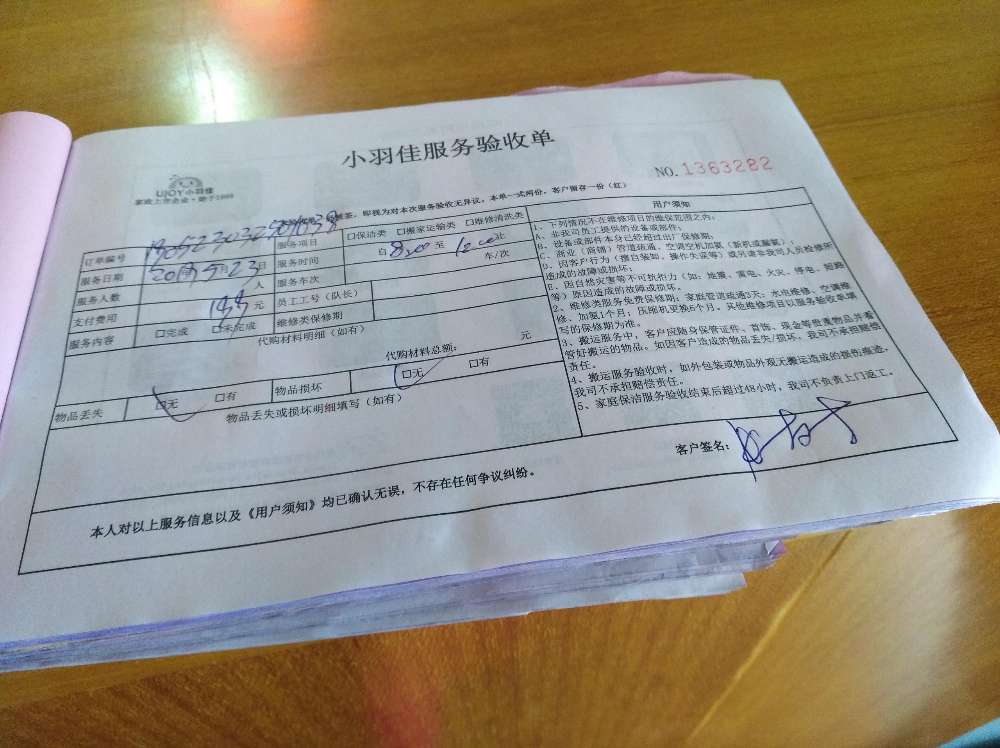 小羽佳服务验收单
UJOY小羽佳
家政上市企业·始于1999
NO.1363282
签，即视为对本次服务验收无异议。本单一式两份，客户留存一份（红）
订单编号
服务项目 □保洁类 □搬家运输类 □维修清洗类
服务日期 2019年5月23日 服务时间 自8:00至12:00止
服务人数 人 服务车次 车/次
支付费用 元 员工工号（队长）
服务内容 □完成 □未完成 维修类保修期
代购材料明细（如有）
代购材料总额： 元
物品丢失 □无 □有 物品损坏 □无 □有
物品丢失或损坏明细填写（如有）
用户须知
1、下列情况不在维修项目的维保范围之内：
A、非我司员工提供的设备或部件；
B、设备或部件本身已经超过出厂保修期；
C、商业（商铺）管道疏通、空调空机加氨（新机或漏氨）；
D、因客户行为（擅自装卸、操作失误等）或另请非我司人员检修所
造成的故障或损坏；
E、因自然灾害等不可抗拒力（如：地震、雷电、火灾、停电、短路
等）原因造成的故障或损坏。
2、维修类服务免费保修期：家庭管道疏通5天；水电维修、空调维
修、加氨1个月；压缩机更换6个月。其他维修项目以服务验收单填
写的保修期为准。
3、搬运服务中，客户应随身保管证件、首饰、现金等贵重物品并看
管好搬运的物品。如因客户造成的物品丢失/损坏，我司不承担赔偿
责任。
4、搬运服务验收时，如外包装或物品外观无搬运造成的损伤痕迹，
我司不承担赔偿责任。
5、家庭保洁服务验收结束后超过48小时，我司不负责上门返工。
本人对以上服务信息以及《用户须知》均已确认无误，不存在任何争议纠纷。
客户签名：